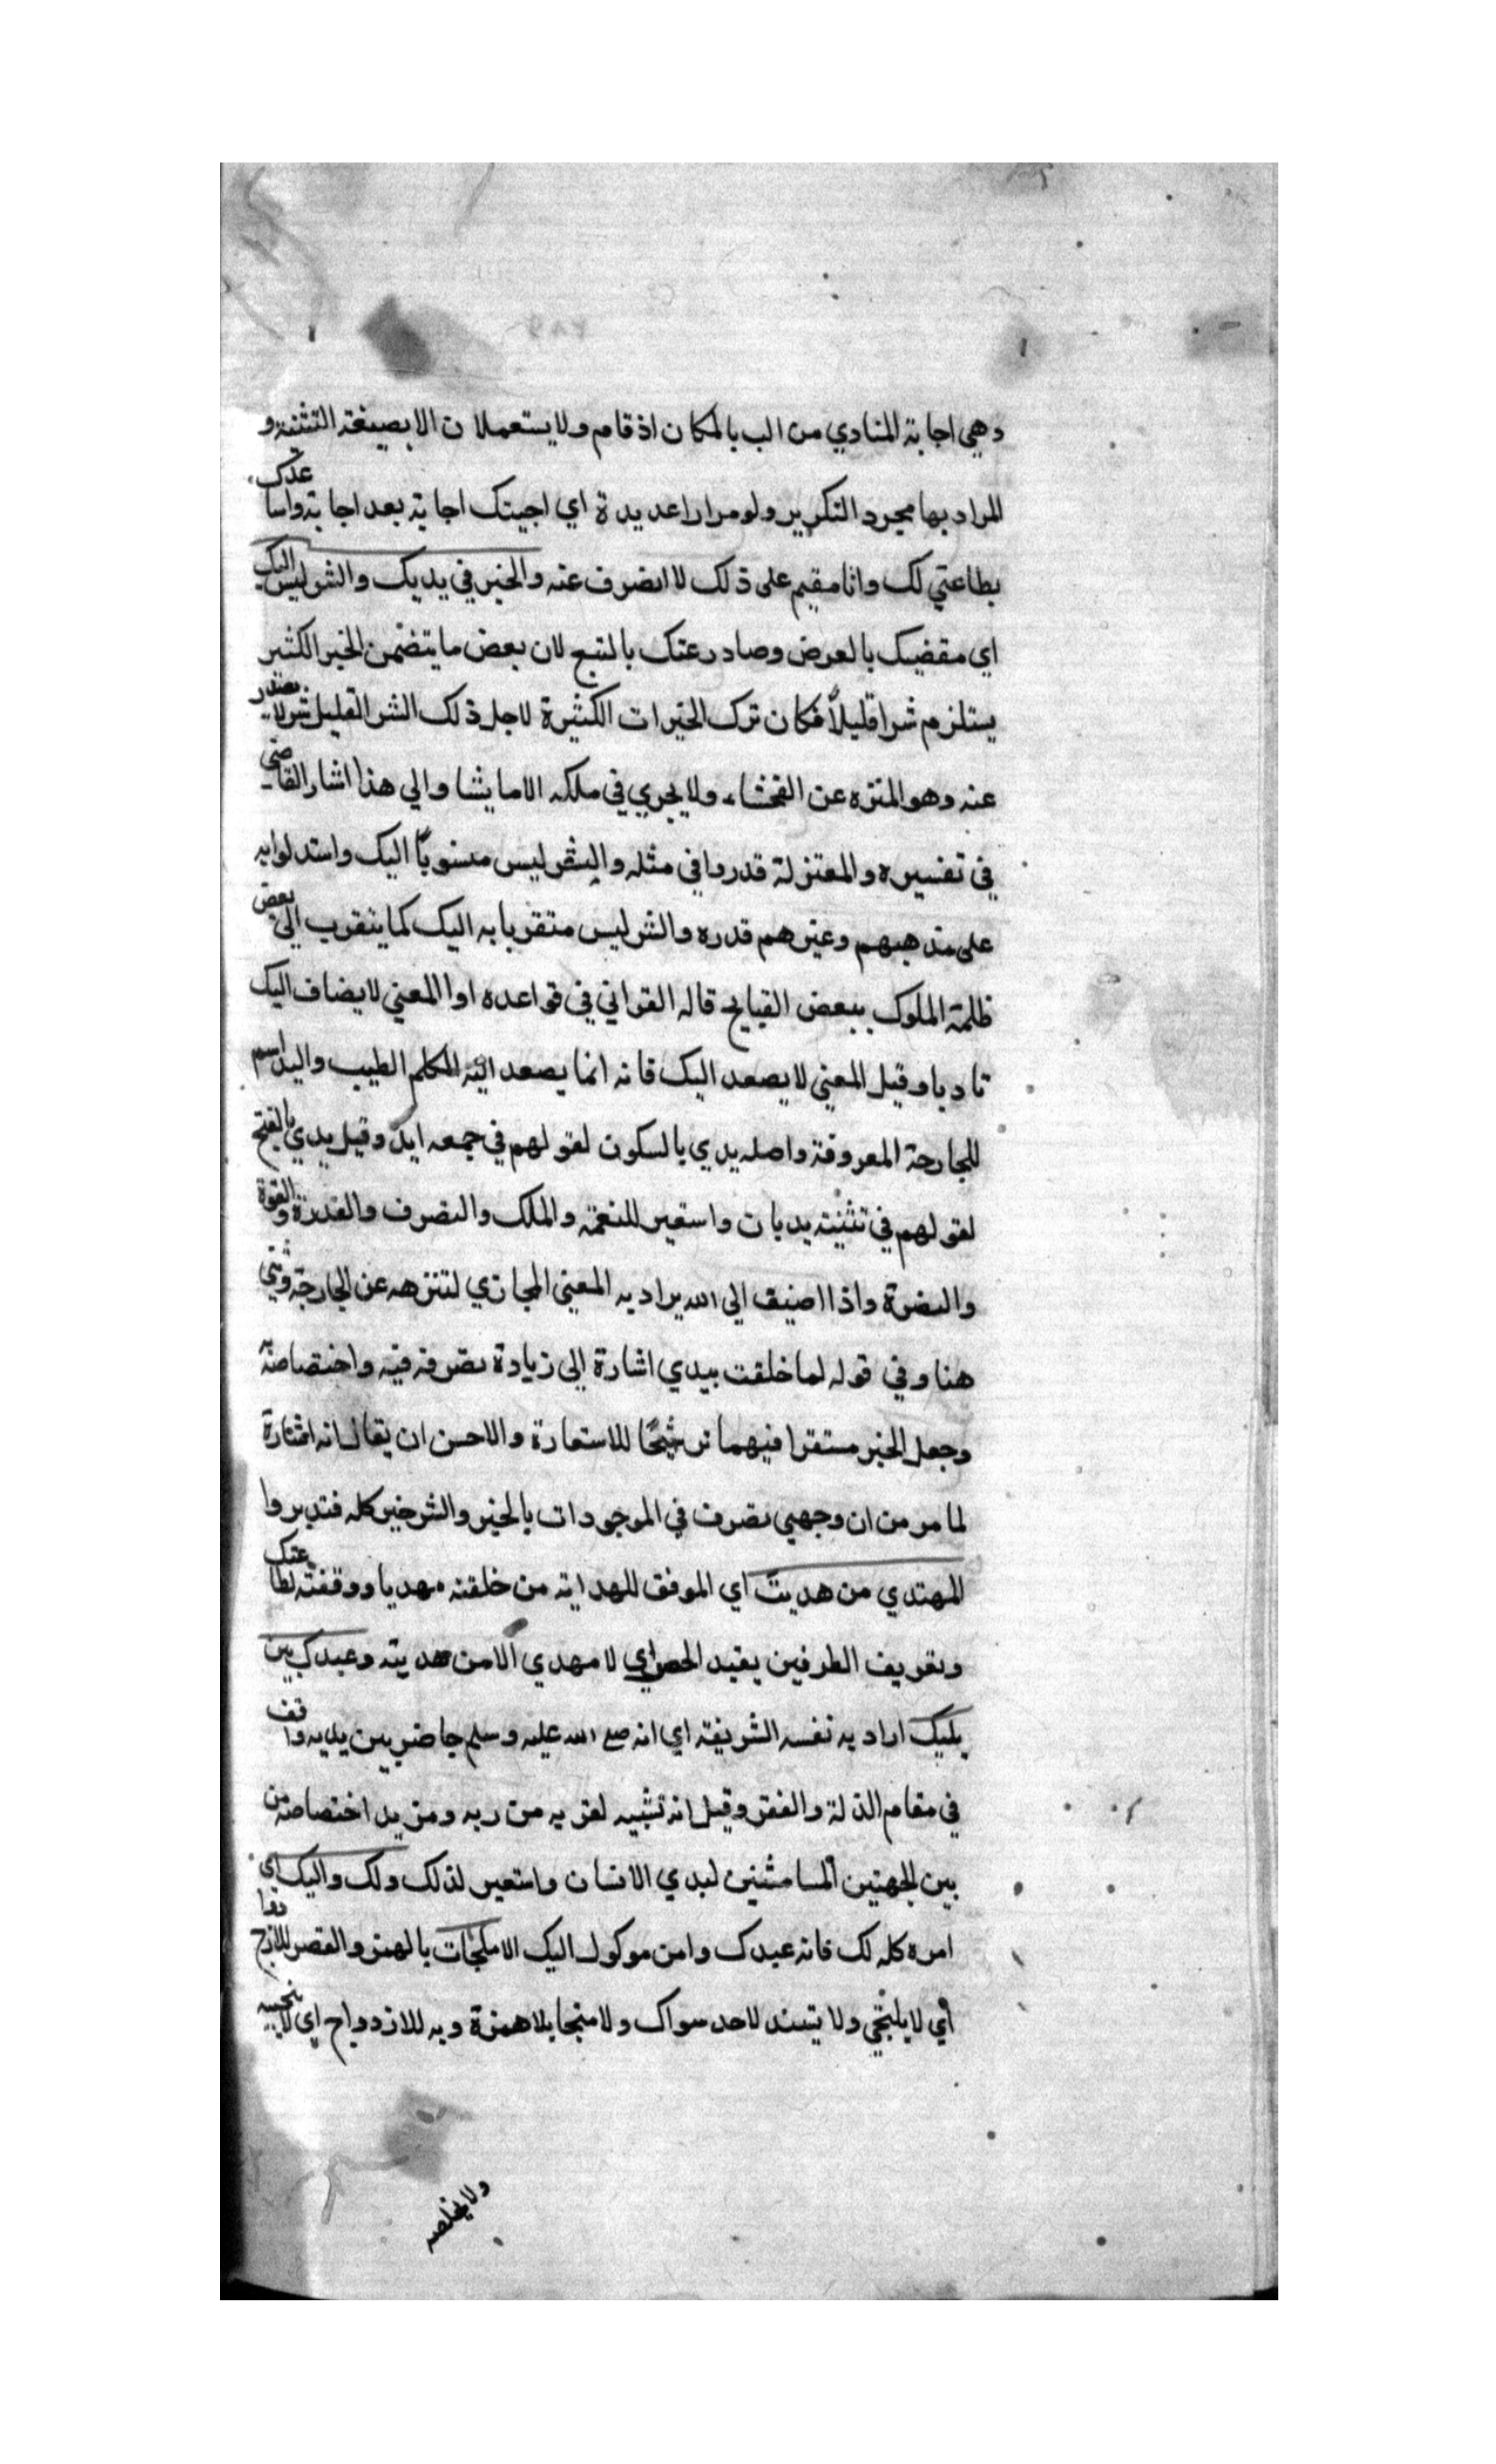 وهي اجابة المنادي من الب بالمكان اذ قام ولا يستعملان الا بصيغة التثنية و
المراد بها مجرد التكرير ولو مرارا عديدة اي اجيتك اجابة بعد اجابة واساعدك
بطاعتي لك وانا مقيم على ذلك لا انصرف عنه والخير في يديك والشر ليس اليك
اي مقضيك بالعرض وصادر عتك بالتبع لان بعض ما يتضمن الخير الكثير
يستلزم شرا قليلاً فكان ترك الخيرات الكثيرة لاجل ذلك الشر القليل شر لا يصدر
عنه وهو المنزه عن الفحشاء ولا يجري في ملكه الا ما يشا والي هذا اشار القاضي
في تفسيره والمعتزلة قدروا في مثله والشر ليس منسوباً اليك واستدلوا به
على مذهبهم وغيرهم قدره والشر ليس متقربا به اليك كما يتقرب الى بعض
ظلمة الملوك ببعض القبايح قاله القرافي في قواعده او المعني لا يضاف اليك
تادبا وقيل المعني لا يصعد اليك فانه انما يصعد اليه الكلم الطيب واليد اسم
للجارحة المعروفة واصله يدي بالسكون لقولهم في جمعه ايد وقيل يدي بالفتح
لقولهم في تثنيته يديان واستعير للنعمة والملك والتصرف والقدرة والقوة
والنصرة واذا اضيف الى الله يراد به المعنى المجازي لتنزهه عن الجارحة وثني
هنا وفي قوله لما خلقت بيدي اشارة الى زيادة تصرفه فيه واختصاصه
وجعل الخير مستقرا فيهما ترشيحًا للاستعارة والاحسن ان يقال انه اشارة
لما مر من ان وجهي تصرف في الموجودات بالخير والشر خير كله فتدبر وا
المهتدي من هديت اي الموفق للهداية من خلقته مهديا ووقفته لطاعتك
وتعريف الطرفين يفيد الحصر اي لا مهدي الا من هديته وعبدك بين
يديك اراد به نفسه الشريفة اي انه صع الله عليه وسلم حاضر بين يديه واقف
في مقام الذلة والفقر وقيل انه تشبيه لقربه من ربه ومزيد اختصاصه من
بين الجهتين المسامتتين ليدي الانسان واستعير لذلك ولك واليك اي
امره كله لك فانه عبدك وامن موكول اليك لا ملجات بالهمز والقصر للازدواج
أي لا يلتجي ولا يستند لاحد سواك ولا منجا بلا همزة وبه للازدواج اي لا ينجيه
ولا يخلصه